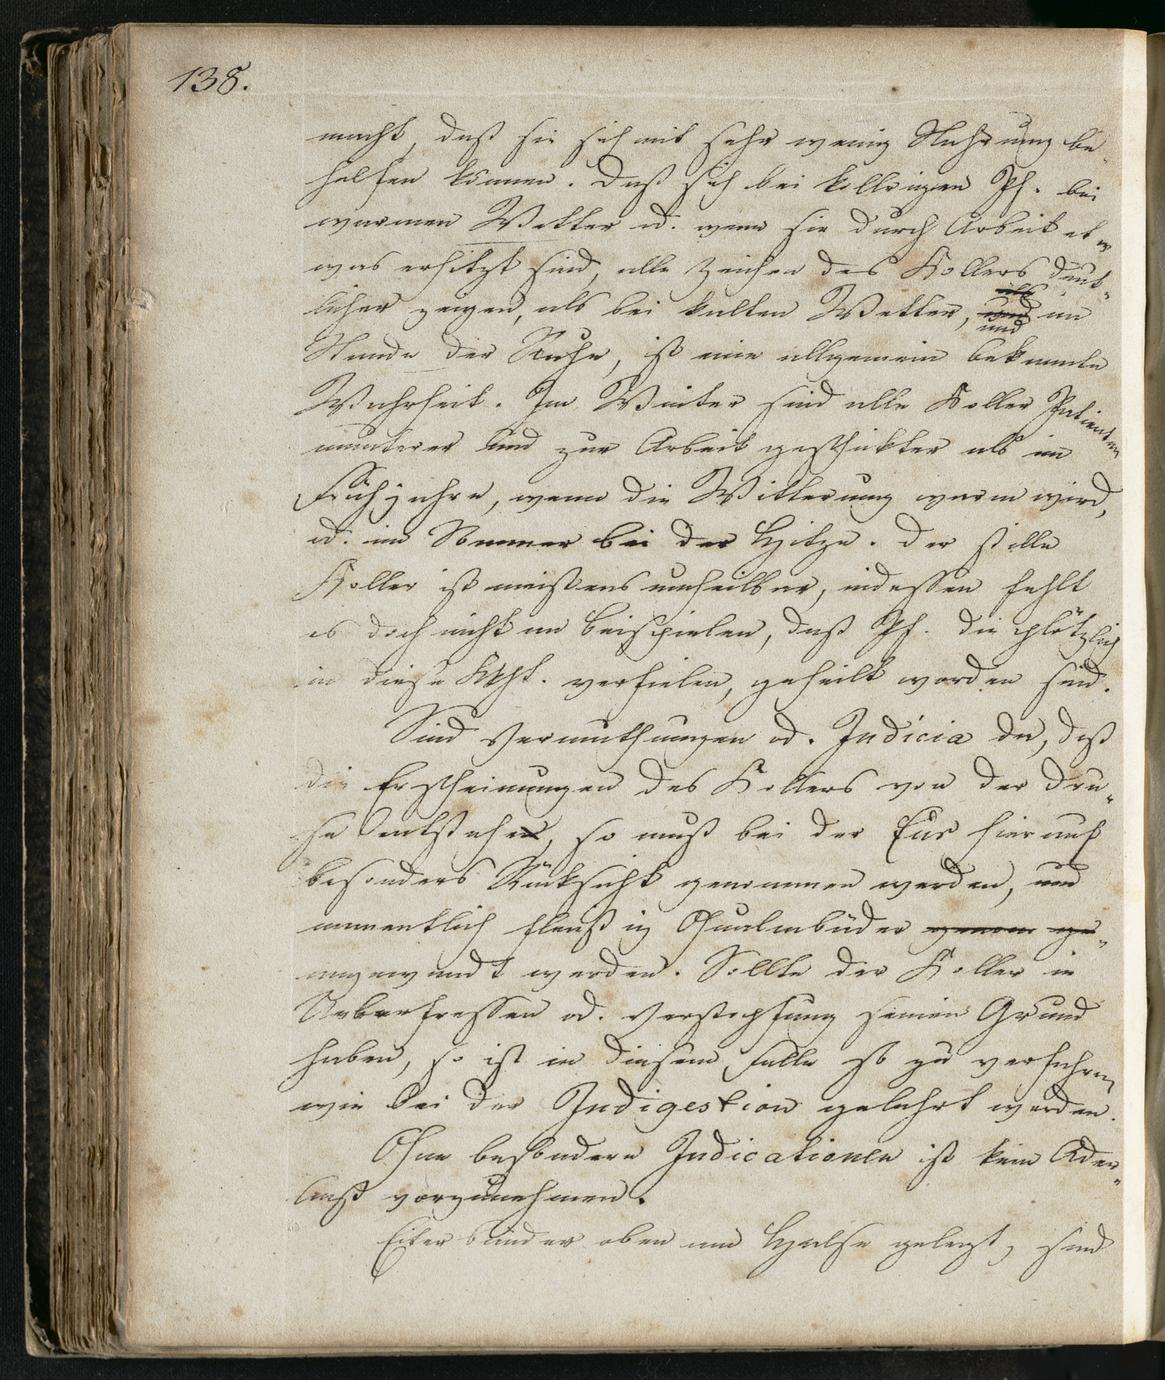 138.
macht, daß sie sich mit sehr wenig Nahrung be„
helfen können. Daß sich bei kollrigen Pf. bei
warmen Wetter od. wenn sie durch Arbeit et„
was erhitzt sind, alle Zeichen des Kollers deut„
licher zeigen, als bei kalten Wetter, und im
Stande der Ruhe, ist eine allgemein bekannte
Wahrheit. Im Winter sind alle Koller Patienten
munterer und zur Arbeit geschikter als im
Frühjahre, wenn die Witterung warm wird,
od. im Sommer bei der Hitze. Der stille
Koller ist meistens unheilbar, indessen fehlt
es doch nicht an Beispielen, daß Pf. die plötzlich
in diese verfielen, geheilt worden sind.
Sind Vermuthungen od. Indicia da, daß
die Erscheinungen des Kollers von der Dru„
se entstehen, so muß bei der Cur hierauf
besonders Rüksicht genommen werden, und
namentlich fleißig Qualmbäder
angewandt werden. Sollte der Koller in
Ueberfressen od. Verstopfung seinen Grund
haben, so ist in diesem Falle so zu verfahren
wie bei der Indigestion gelehrt worden.
Ohne besondere Indicationen ist kein Ader„
laß vorzunehmen.
Eiterbänder oben am Halse gelegt, sind